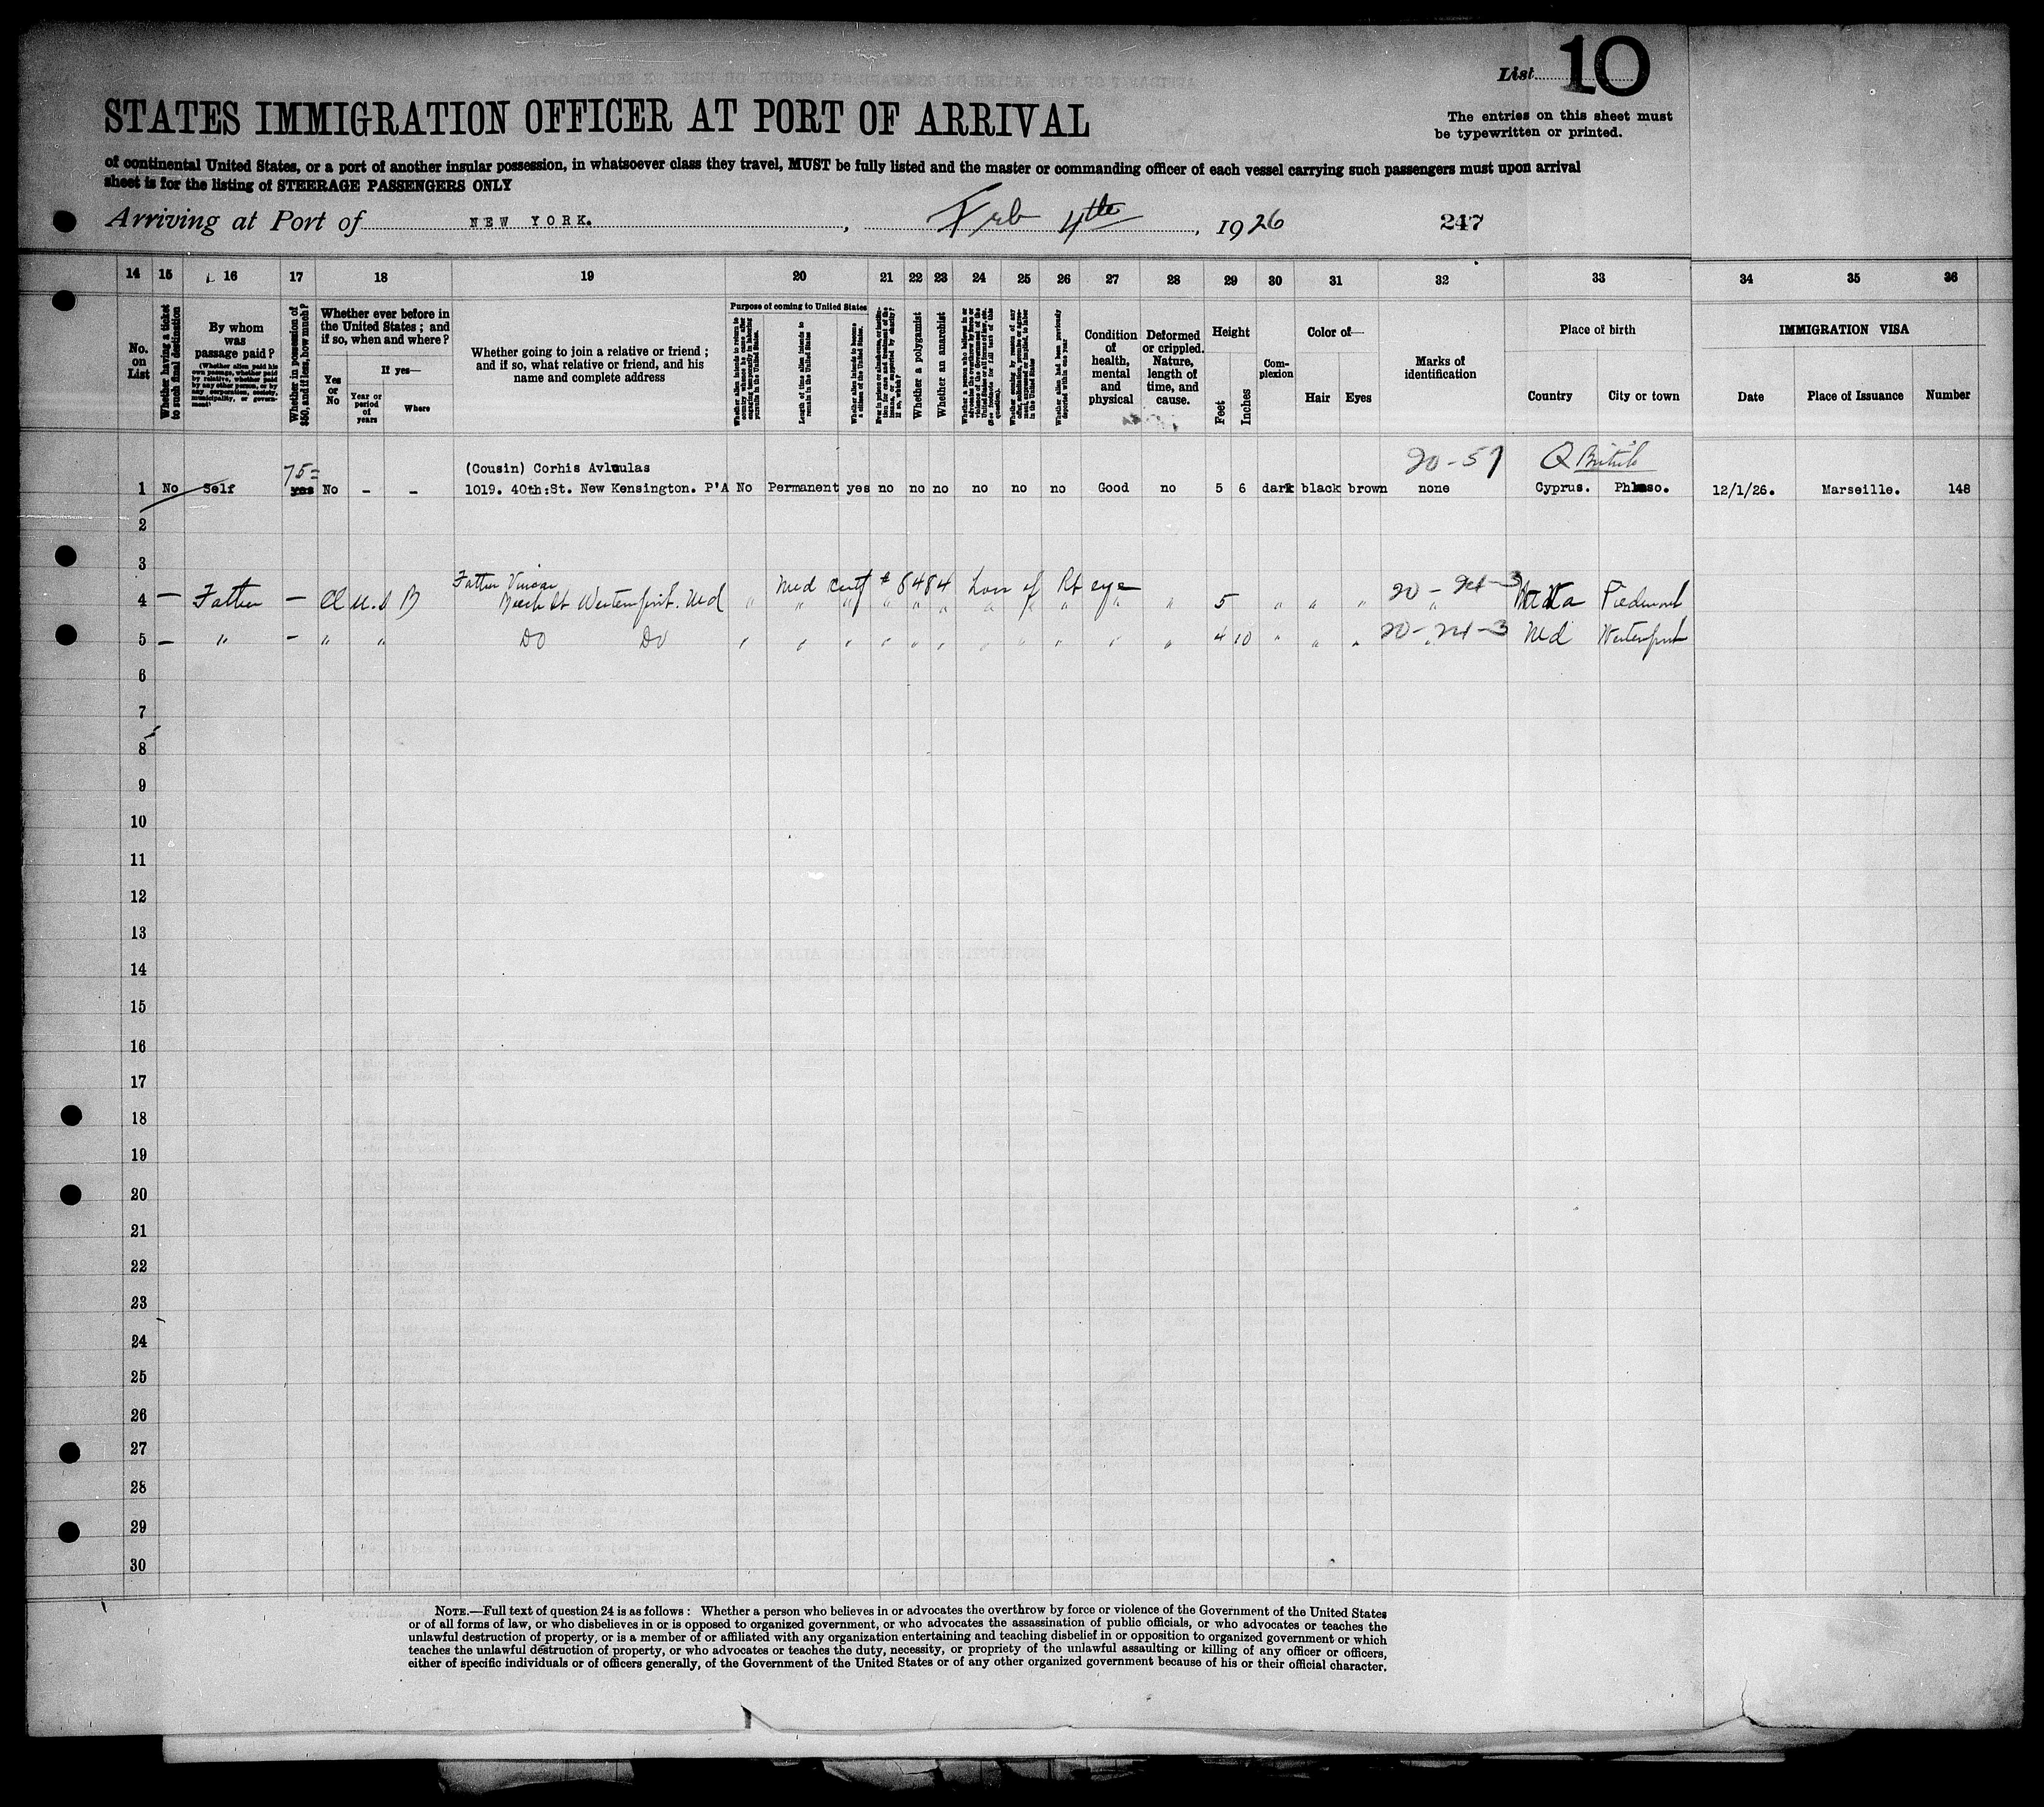 List 10
The entries on this sheet must
be typewritten or printed.
STATES IMMIGRATION OFFICER AT PORT OF ARRIVAL
of continental United States, or a port of another insular possession, in whatsoever class they travel, MUST be fully listed and the master or commanding officer of each vessel carrying such passengers must upon arrival
sheet is for the listing of STEERAGE PASSENGERS ONLY
Arriving at Port of NEW YORK. , Feb 4th , 1926 247
14 15 16 17 18 19 20 21 22 23 24 25 26 27 28 29 30 31 32 33 34 35 36
No. on List
Whether having a ticket to such final destination
By whom was passage paid?
(Whether alien paid his own passage, whether paid by relative, whether paid by any other person, or by any corporation, society, municipality, or government)
Whether in possession of $50, and if less, how much?
Whether ever before in the United States; and if so, when and where?
Yes or No
If yes—
Year or period of years
Where
Whether going to join a relative or friend; and if so, what relative or friend, and his name and complete address
Purpose of coming to United States
Whether alien intends to return to country whence he came after engaging temporarily in laboring pursuits in the United States.
Length of time alien intends to remain in the United States
Whether alien intends to become a citizen of the United States.
Whether a polygamist
Whether an anarchist
Whether alien had been previously deported within one year
Condition of health, mental and physical
Deformed or crippled. Nature, length of time, and cause.
Height
Feet
Inches
Complexion
Color of—
Hair
Eyes
Marks of identification
Place of birth
Country
City or town
IMMIGRATION VISA
Date
Place of Issuance
Number
75= (Cousin) Corhis 20-57 Q British
1 No Self yes No - - 1019. 40th:St. New Kensington. P'A No Permanent yes no no no no no no Good no 5 6 dark black brown none Cyprus. 12/1/26. Marseille. 148
2
3
Father Med cert # 8484 Loss of Rt eye
4 — Father — U.S B Westernport. Md " " " " " " " 5 " " " 20 - 24 - 3 Piedmont
5 — " — " " Do Do " " " " " " " " " " " 4 10 " " " 20-24-3 Md Westernport
6
7
8
9
10
11
12
13
14
15
16
17
18
19
20
21
22
23
24
25
26
27
28
29
30
NOTE.—Full text of question 24 is as follows: Whether a person who believes in or advocates the overthrow by force or violence of the Government of the United States
or of all forms of law, or who disbelieves in or is opposed to organized government, or who advocates the assassination of public officials, or who advocates or teaches the
unlawful destruction of property, or is a member of or affiliated with any organization entertaining and teaching disbelief in or opposition to organized government or which
teaches the unlawful destruction of property, or who advocates or teaches the duty, necessity, or propriety of the unlawful assaulting or killing of any officer or officers,
either of specific individuals or of officers generally, of the Government of the United States or of any other organized government because of his or their official character.